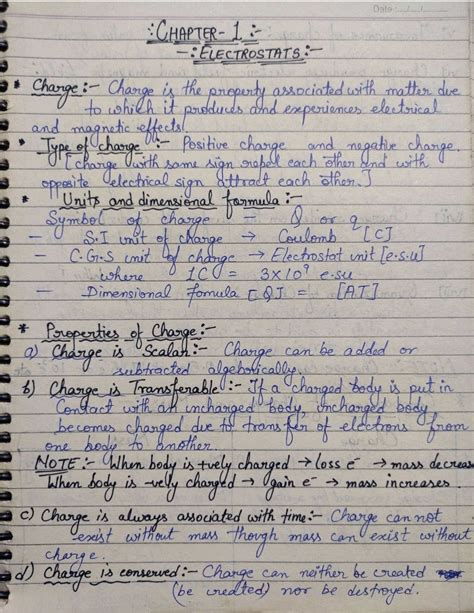 Date:
:CHAPTER-1:-
-:ELECTROSTATS:-
* Charge:- Charge is the property associated with matter due
to which it produces and experiences electrical
and magnetic effects.
* Type of charge :- Positive charge and negative charge.
[charge with same sign repel each other and with
opposite electrical sign attract each other.]
* Units and dimensional formula:-
Symbol of charge = Q or q
- S.I unit of charge → Coulomb [C]
- C.G.S unit of charge → Electrostat unit [e.s.u]
where 1C = 3×10⁹ e.s.u
- Dimensional Fomula [Q] = [AT]
* Properties of Charge:-
a) Charge is Scalar:- Charge can be added or
subtracted algeborically.
b) Charge is Transferable:- If a charged body is put in
Contact with an uncharged body, uncharged body
becomes charged due to transfer of electrons from
one body to another.
NOTE:- When body is +vely charged → loss e⁻ → mass decreas
When body is -vely charged → gain e⁻ → mass increases.
c) Charge is always associated with time:- Charge can not
exist without mass though mass can exist without
charge.
d) Charge is conserved:- Charge can neither be created
(be created) nor be destroyed.